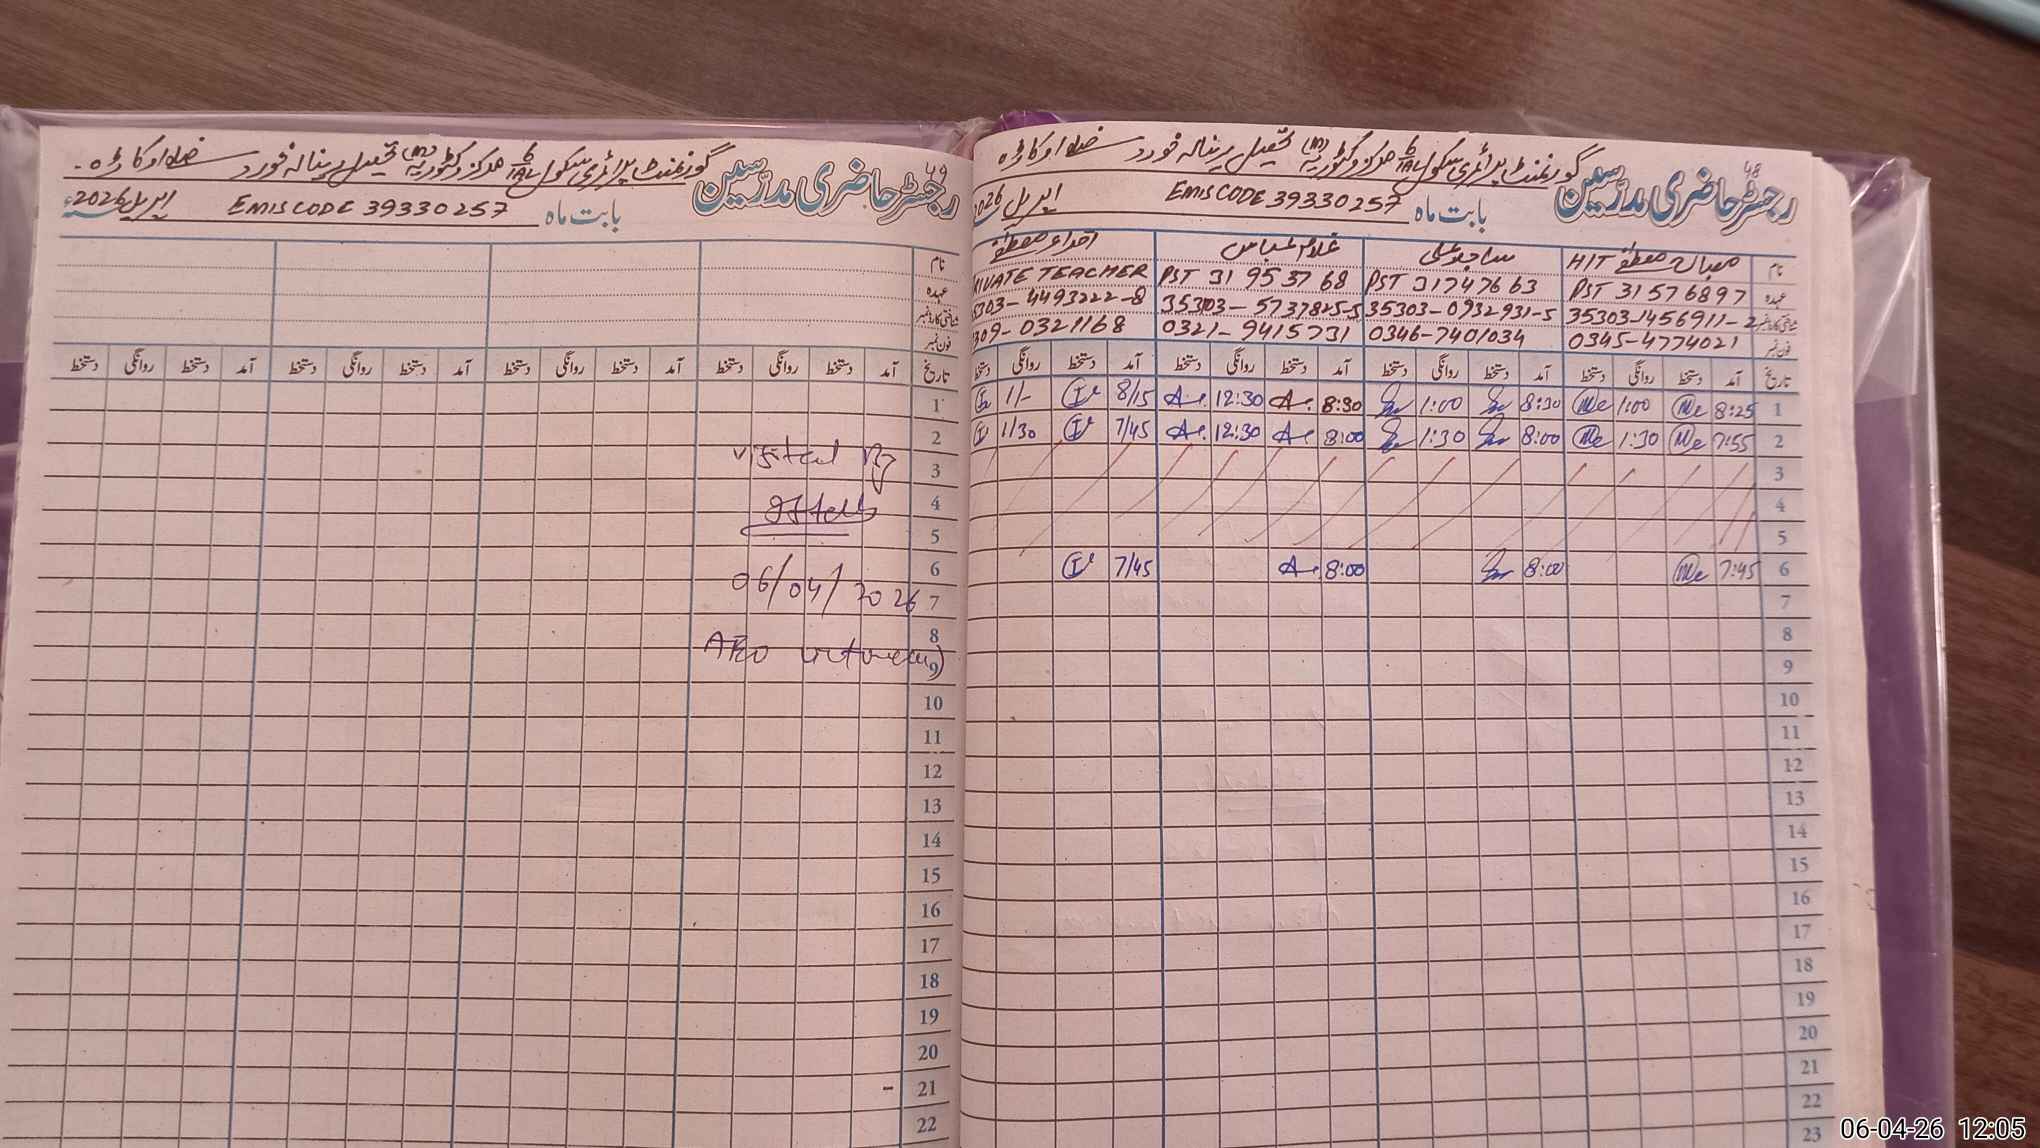 رجسٹر حاضری مدرسین 48
گورنمنٹ پرائمری سکول مرکز وکٹوریہ (m) تحصیل رینالہ خورد ضلع اوکاڑہ
بابت ماہ EMIS CODE 39330257 اپریل 2026
نام HIT ساجد علی غلام عباس
عہدہ PST 31576897 PST 31747663 PST 31953768 PRIVATE TEACHER
شناختی کارڈ نمبر 35303-1456911-2 35303-0932931-5 35303-5737825-5 5303-4493222-8
فون نمبر 0345-4774021 0346-7401034 0321-9415731 309-0321168
تاریخ آمد دستخط روانگی دستخط آمد دستخط روانگی دستخط آمد دستخط روانگی دستخط آمد دستخط روانگی دستخط
1 8:25 1:00 8:30 1:00 8:30 12:30 8/15 1/-
2 7:55 1:30 8:00 1:30 8:00 12:30 7/45 1/30
3
4
5
6 7:45 8:00 8:00 7/45
7
8
9
10
11
12
13
14
15
16
17
18
19
20
21
22
23
رجسٹر حاضری مدرسین 49
گورنمنٹ پرائمری سکول مرکز وکٹوریہ (m) تحصیل رینالہ خورد ضلع اوکاڑہ
بابت ماہ EMIS CODE 39330257 اپریل 2026
نام
عہدہ
شناختی کارڈ نمبر
فون نمبر
تاریخ آمد دستخط روانگی دستخط آمد دستخط روانگی دستخط آمد دستخط روانگی دستخط آمد دستخط روانگی دستخط
1
2
visited by
3
4
5
6
06/04/2026
7
8
AEO
9
10
11
12
13
14
15
16
17
18
19
20
21
22
06-04-26 12:05